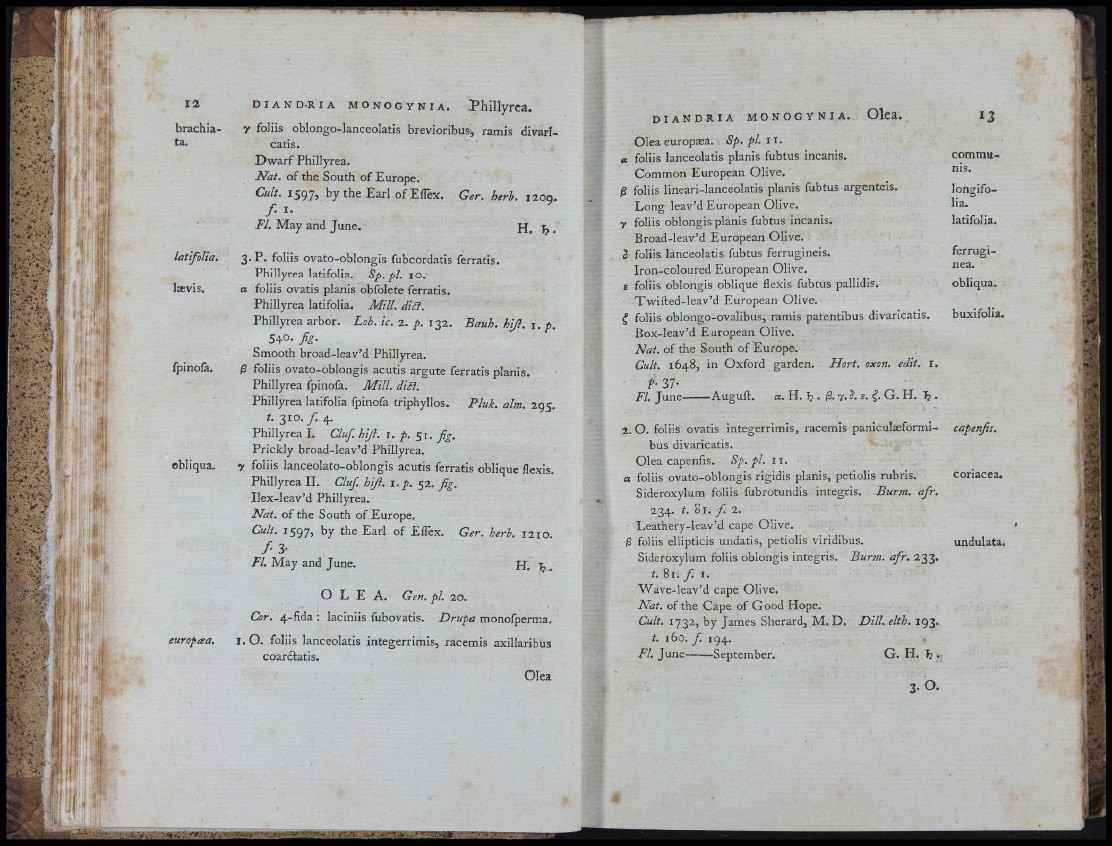 12 DIANDRIA MONOGYNIA. Phillyrea.
brachia- γ foliis oblongo-lanceolatis brevioribus, ramis divari-
ta. catis.
Dwarf Phillyrea.
Nat. of the South of Europe.
Cult. 1597, by the Earl of Eſſex. Ger. herb. 1209.
f. 1.
Fl. May and June. H. ♄.
latifolia. 3. P. foliis ovato-oblongis ſubcordatis ſerratis.
Phillyrea latifolia. Sp. pl. 10.
lævis. α foliis ovatis planis obſolete ſerratis.
Phillyrea latifolia. Mill. dict.
Phillyrea arbor. Lob. ic. 2. p. 132. Bauh. hiſt. 1. p.
540. fig.
Smooth broad-leav'd Phillyrea.
ſpinoſa. β foliis ovato-oblongis acutis argute ſerratis planis.
Phillyrea ſpinoſa. Mill. dict.
Phillyrea latifolia ſpinoſa triphyllos. Pluk. alm. 295.
t. 310. f. 4.
Phillyrea I. Cluſ. hiſt. 1. p. 51. fig.
Prickly broad-leav'd Phillyrea.
obliqua. γ foliis lanceolato-oblongis acutis ſerratis oblique flexis.
Phillyrea II. Cluſ. hiſt. 1. p. 52. fig.
Ilex-leav'd Phillyrea.
Nat. of the South of Europe.
Cult. 1597, by the Earl of Eſſex. Ger. herb. 1210.
f. 3.
Fl. May and June. H. ♄.
OLEA. Gen. pl. 20.
Cor. 4-fida : laciniis ſubovatis. Drupa monoſperma.
europæa. 1. O. foliis lanceolatis integerrimis, racemis axillaribus
coarctatis.
Olea
DIANDRIA MONOGYNIA. Olea. 13
Olea europæa. Sp. pl. 11.
α foliis lanceolatis planis ſubtus incanis. commu-
Common European Olive. nis.
β foliis lineari-lanceolatis planis ſubtus argenteis. longifo-
Long leav'd European Olive. lia.
γ foliis oblongis planis ſubtus incanis. latifolia.
Broad-leav'd European Olive.
δ foliis lanceolatis ſubtus ferrugineis. ferrugi-
Iron-coloured European Olive. nea.
ε foliis oblongis oblique flexis ſubtus pallidis. obliqua.
Twiſted-leav'd European Olive.
ζ foliis oblongo-ovalibus, ramis patentibus divaricatis. buxifolia.
Box-leav'd European Olive.
Nat. of the South of Europe.
Cult. 1648, in Oxford garden. Hort. oxon. edit. 1.
p. 37.
Fl. June——Auguſt. α. H. ♄. β. γ. δ. ε. ζ. G. H. ♄.
2. O. foliis ovatis integerrimis, racemis paniculæformi- capenſis.
bus divaricatis.
Olea capenſis. Sp. pl. 11.
α foliis ovato-oblongis rigidis planis, petiolis rubris. coriacea.
Sideroxylum foliis ſubrotundis integris. Burm. afr.
234. t. 81. f. 2.
Leathery-leav'd cape Olive.
β foliis ellipticis undatis, petiolis viridibus. undulata.
Sideroxylum foliis oblongis integris. Burm. afr. 233.
t. 81. f. 1.
Wave-leav'd cape Olive.
Nat. of the Cape of Good Hope.
Cult. 1732, by James Sherard, M. D. Dill. elth. 193.
t. 160. f. 194.
Fl. June——September. G. H. ♄.
3. O.